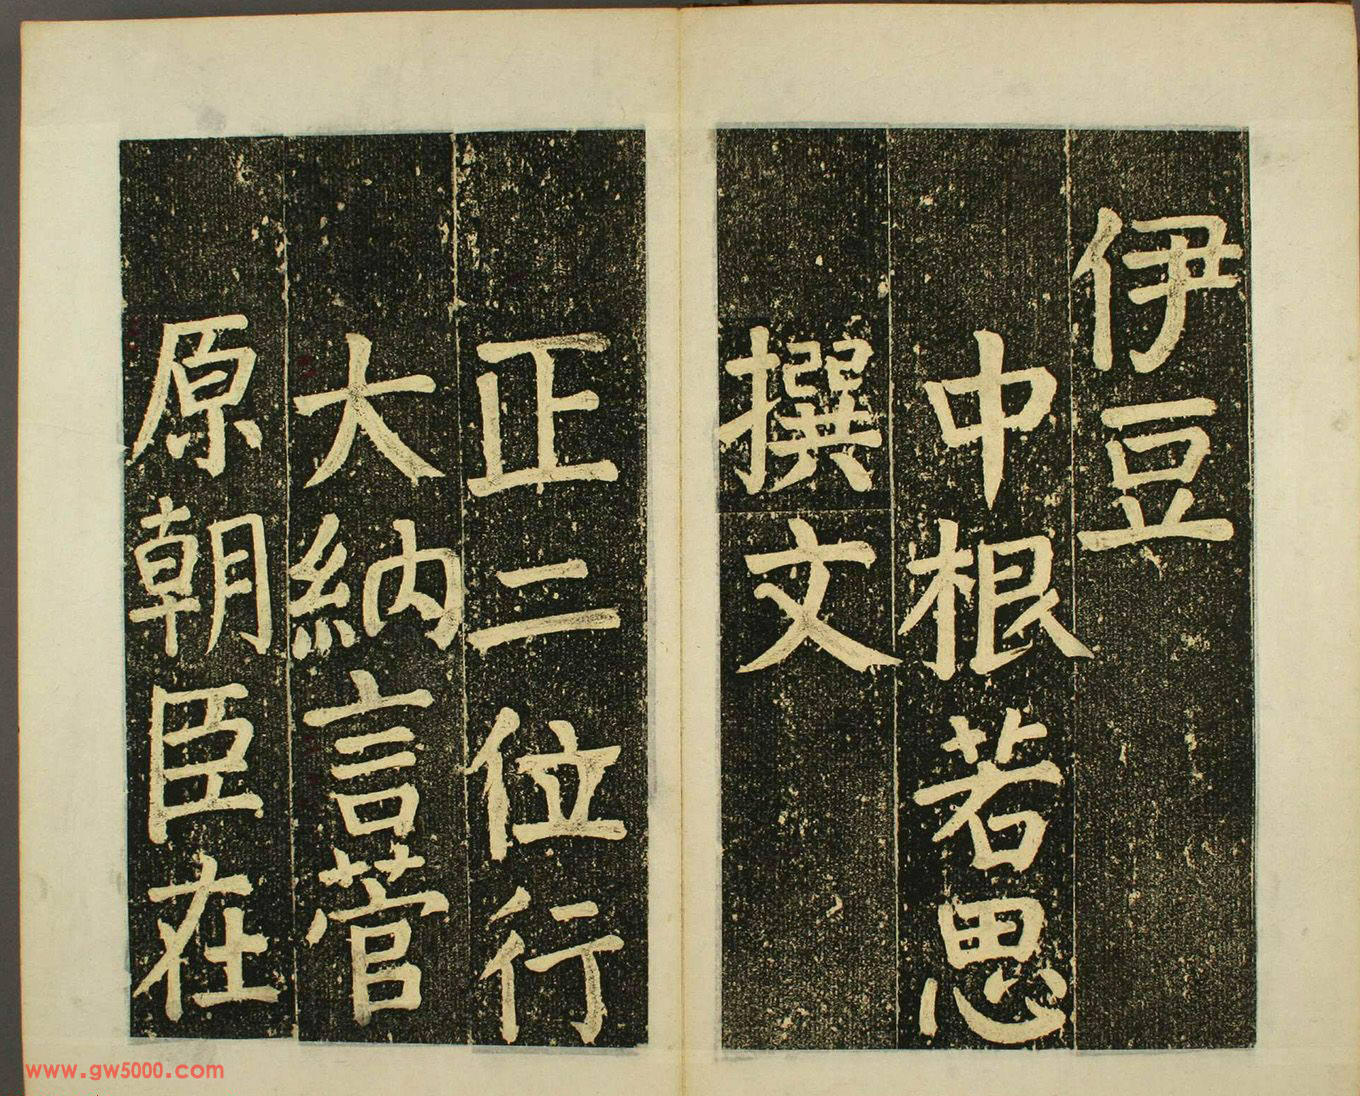 伊豆
中根若思
撰文
正二位行
大納言菅
原朝臣在
www.gw5000.com